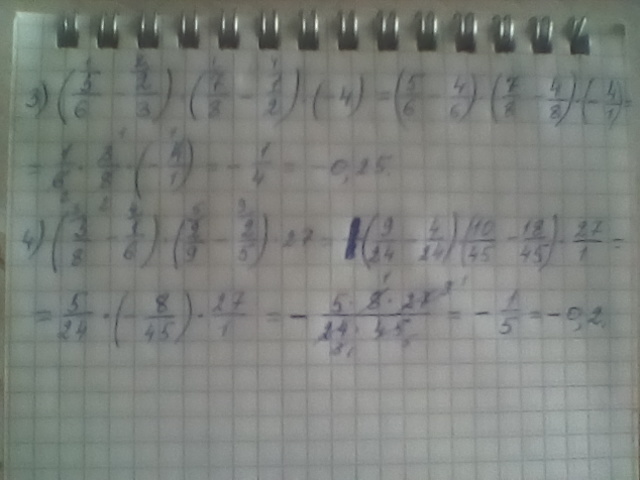 3) (5/6 - 2/3) · (7/8 - 1/2) · (-4) = (5/6 - 4/6) · (7/8 - 4/8) · (-4/1) =
= 1/6 · 3/8 · (-4/1) = - 1/4 = - 0,25.
4) (3/8 - 1/6) · (2/9 - 2/5) · 27 = (9/24 - 4/24) (10/45 - 18/45) · 27/1 =
= 5/24 · (- 8/45) · 27/1 = - 5·8·27/24·45 = - 1/5 = -0,2.